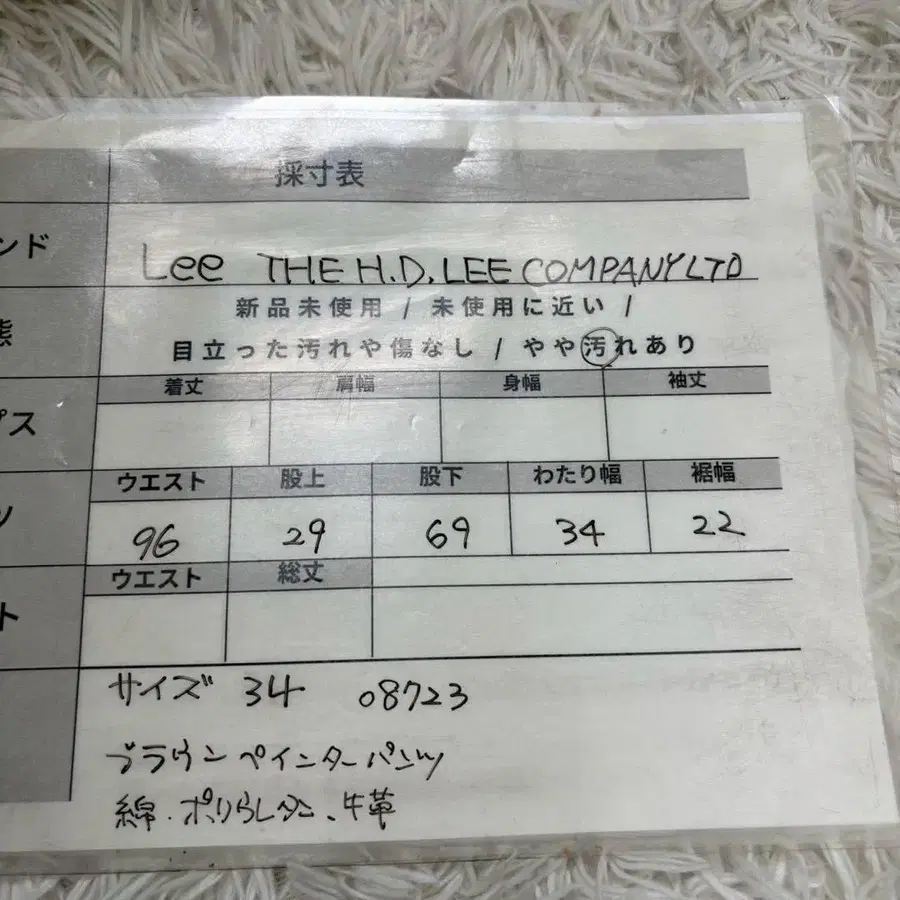 採寸表
ンド Lee THE H.D. LEE COMPANY LTD
新品未使用 / 未使用に近い /
態
目立った汚れや傷なし / やや汚れあり
着丈 肩幅 身幅 袖丈
プス
ウエスト 股上 股下 わたり幅 裾幅
ツ 96 29 69 34 22
ウエスト 総丈
ト
サイズ 34 08723
ブラウンペインターパンツ
綿.ポリウレタン、牛革